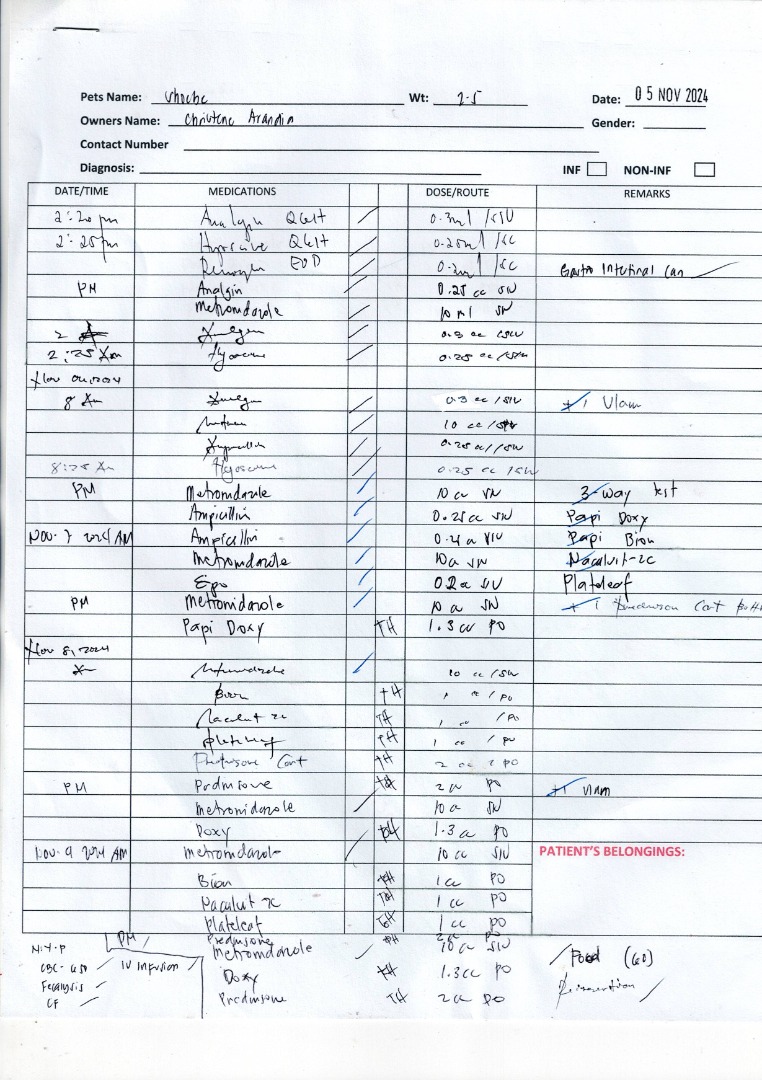 Pets Name: Phoebe Wt: 2.5 Date: 05 NOV 2024
Owners Name: Christene Arandia Gender:
Contact Number
Diagnosis: INF NON-INF
DATE/TIME MEDICATIONS DOSE/ROUTE REMARKS
2:20 pm Analgin Q6H 0.3ml /SIV
2:25pm Hyoscine Q6H 0.25ml /SC
EOD 0.2ml /SC Gastro Intestinal Can
PM Analgin 0.25 cc SIV
Metronidazole 10 ml SIV
2 0.3 cc /SIV
2:25 Am Hyoscine 0.25 cc
Nov 06, 2024
8 Am 0.3 cc /SIV +1 Vlam
10 cc /SIV
0.25 cc /SIV
8:25 Am Hyoscine 0.25 cc /SIV
PM Metronidazole 10 cc SIV 3-way test
Ampicillin 0.25cc SIV Papi Doxy
NOV. 7 2024 AM Ampicillin SIV Papi Bion
Metronidazole 10cc SIV Nacalvit-zc
Epo 0.2cc SIV Plateleaf
PM Metronidazole 10 cc SIV + 1 Prednisone Cort
Papi Doxy TH 1.3 cc PO
Nov 8, 2024
Metronidazole 10 cc /SIV
Bion TH 1 cc / PO
Nacalvit zc TH 1 cc / PO
Plateleaf TH 1 cc / PO
Prednisone Cort TH 2 cc / PO
PM Prednisone TH 2 cc PO +1 Vlam
Metronidazole 10 cc SIV
Doxy TH 1.3 cc PO
NOV. 9 2024 AM Metronidazole 10 cc SIV PATIENT'S BELONGINGS:
Bion TH 1 cc PO
Nacalvit zc TH 1 cc PO
Plateleaf TH 1 cc PO
Prednisone TH 2cc PO
PM Metronidazole 10 cc SIV Food (60)
CBC - 650 IV Infusion Doxy TH 1.3cc PO
Fecalysis Prednisone TH 2 cc PO
CF